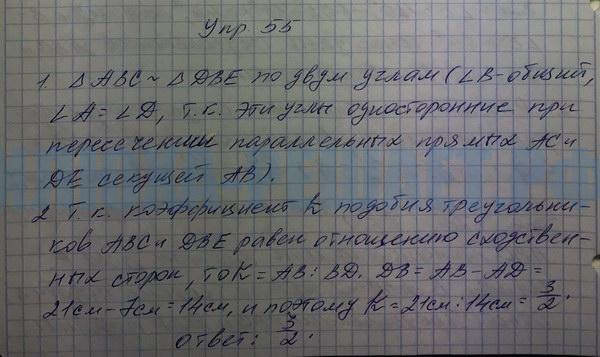 Упр 55
1. △ABC ~ △DBE по двум углам (∠B-общий,
∠A=∠D, т.к. эти углы односторонние при
пересечении параллельных прямых AC и
DE секущей AB).
2 Т.к. коэффициент k подобия треугольни-
ков ABC и DBE равен отношению сходствен-
ных сторон, то K=AB:BD. DB=AB-AD=
21см-7см=14см, и поэтому K=21см:14см=3/2.
ответ: 3/2.